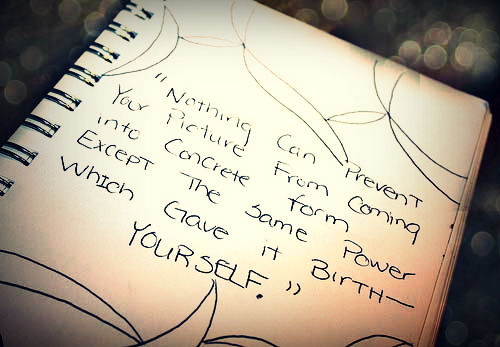 "Nothing Can Prevent
Your Picture From Coming
into Concrete form
Except The Same Power
Which Gave it BirTH—
YOURSELF."